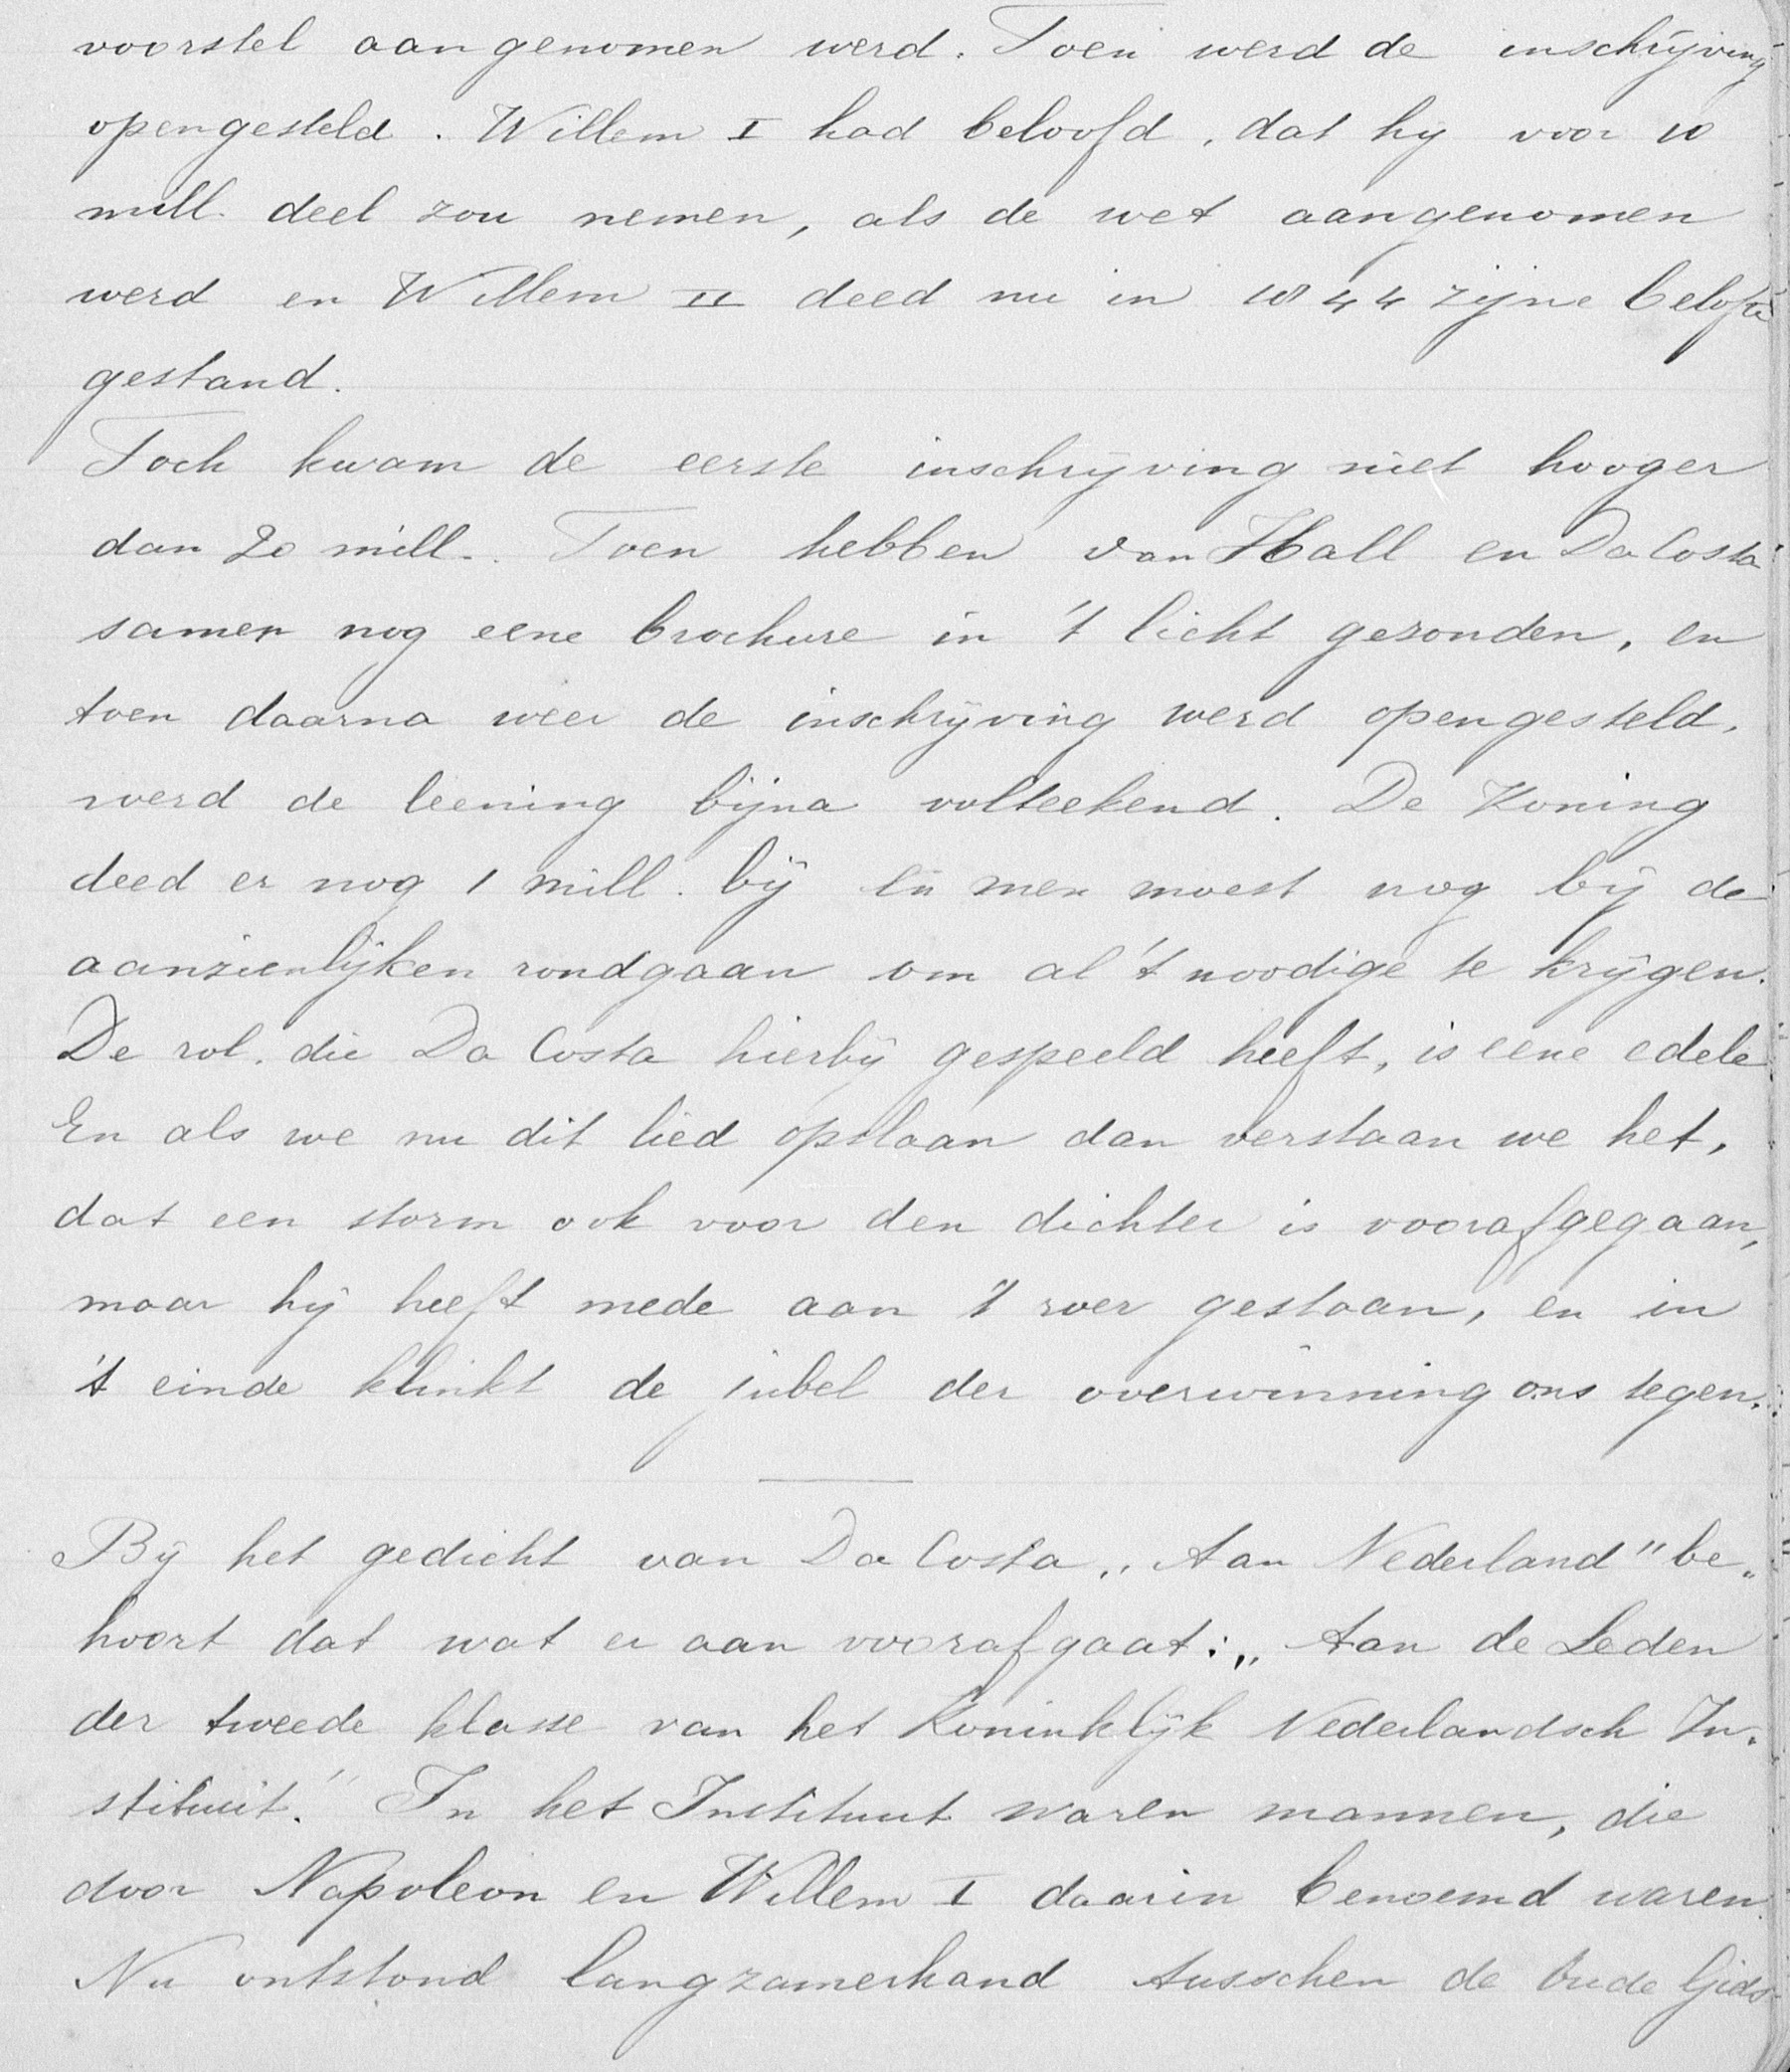 voorstel aangenomen werd. Toen werd de inschrijving
opengesteld. Willem I had beloofd, dat hij voor 10
mill. deel zou nemen, als de wet aangenomen
werd en Willem II deed nu in 1844 zijne belofte
gestand.
Toch kwam de eerste inschrijving niet hooger
dan 20 mill. Toen hebben van Hall en Da Costa
samen nog eene brochure in 't licht gezonden, en
toen daarna weer de inschrijving werd opengesteld,
werd de leening bijna volteekend. De Koning
deed er nog 1 mill. bij en men moest nog bij de
aanzienlijken rondgaan om al 't noodige te krijgen.
De rol, die Da Costa hierbij gespeeld heeft, is eene edele
En als we nu dit lied opslaan dan verstaan we het,
dat een storm ook voor den dichter is voorafgegaan,
maar hij heeft mede aan 't roer gestaan, en in
't einde klinkt de jubel der overwinning ons tegen.
Bij het gedicht van Da Costa „Aan Nederland" be„
hoort dat wat er aan voorafgaat: „Aan de Leden
der tweede klasse van het Koninklijk Nederlandsch In„
stituut." In het Instituut waren mannen, die
door Napoleon en Willem I daarin benoemd waren.
Nu ontstond langzamerhand tusschen de oude Gids-